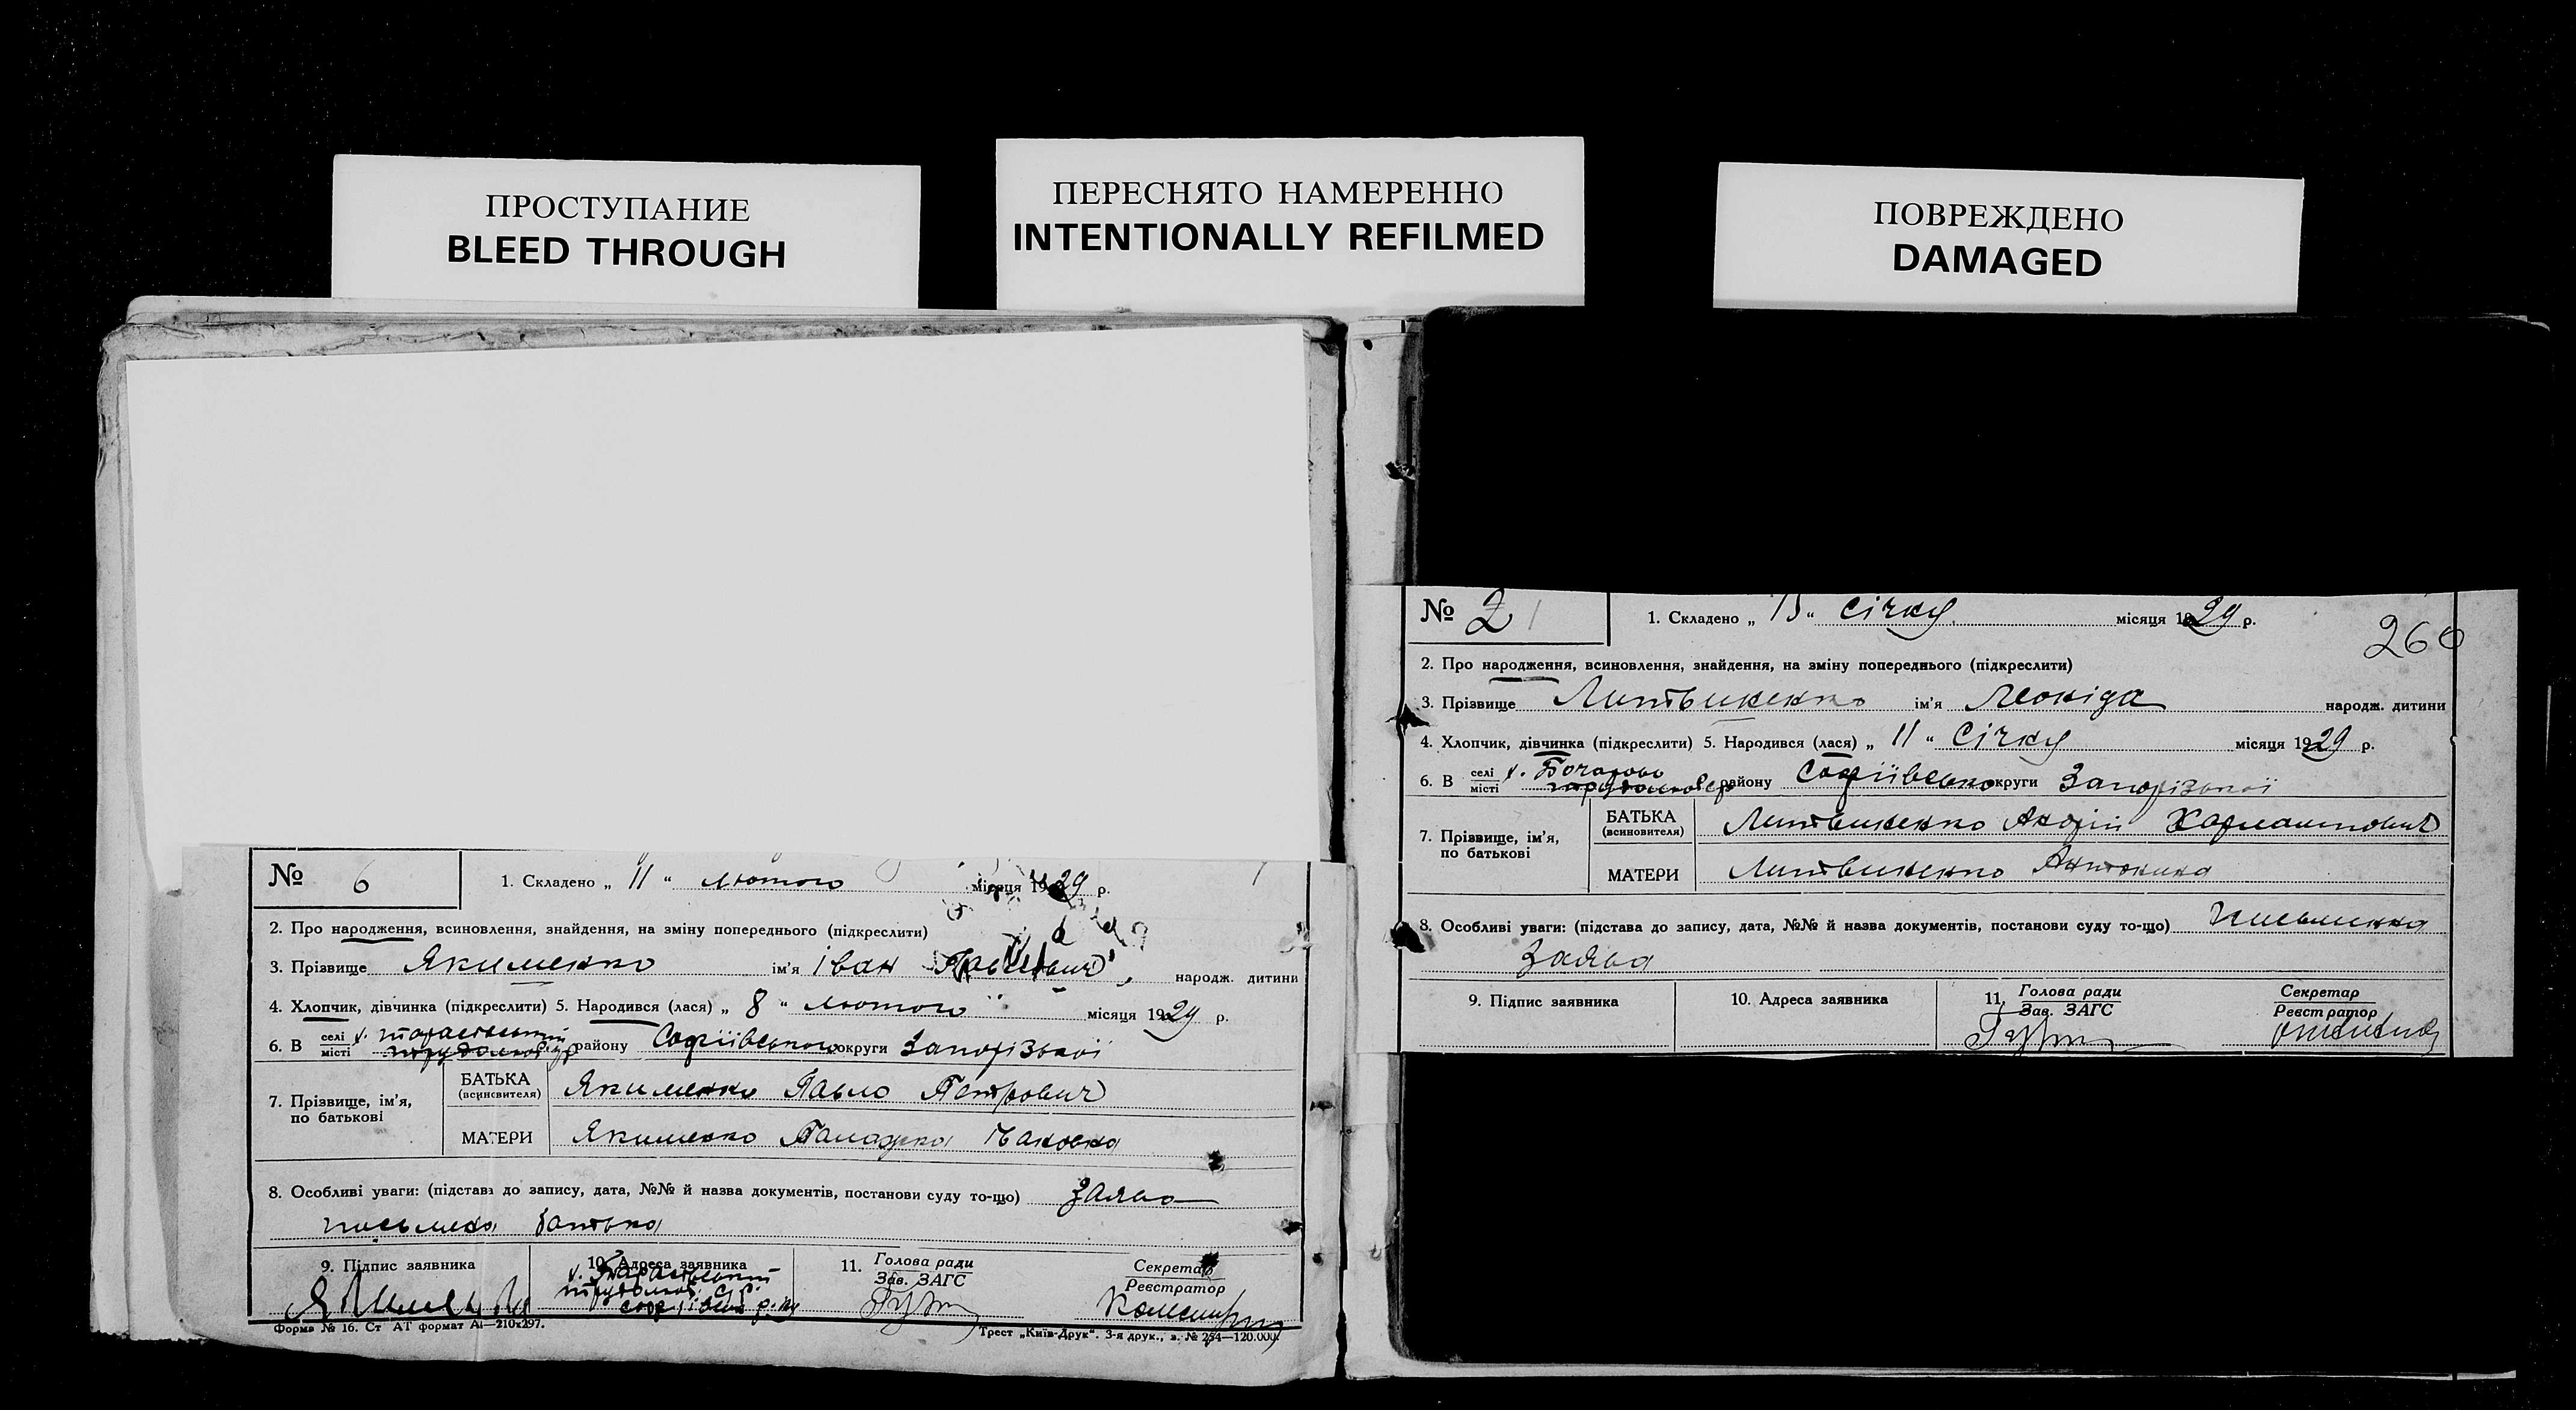 ПРОСТУПАНИЕ
BLEED THROUGH
ПЕРЕСНЯТО НАМЕРЕННО
INTENTIONALLY REFILMED
ПОВРЕЖДЕНО
DAMAGED
№ 6
1. Складено „ 11 “ лютого місяця 1929 р.
2. Про народження, всиновлення, знайдення, на зміну попереднього (підкреслити)
3. Прізвище Якименко ім'я Іван Павлович народж. дитини
4. Хлопчик, дівчинка (підкреслити) 5. Народився (лася) „ 8 “ лютого місяця 1929 р.
6. В селі місті х. району Софіївського округи Запорізької
7. Прізвище, ім'я, по батькові
БАТЬКА (всиновителя) Якименко Павло Петрович
МАТЕРИ Якименко
8. Особливі уваги: (підстава до запису, дата, №№ й назва документів, постанови суду то-що) заява
письмена батька
9. Підпис заявника
10. Адреса заявника
11. Голова ради
Зав. ЗАГС
Секретар
Реєстратор
Форма № 16. Ст АТ формат А4—210x297.
Трест „Київ-Друк“. 3-я друк., з. № 254—120.000.
№ 2
1. Складено „ 15 “ Січня місяця 1929 р.
260
2. Про народження, всиновлення, знайдення, на зміну попереднього (підкреслити)
3. Прізвище Литвиненко ім'я Леоніда народж. дитини
4. Хлопчик, дівчинка (підкреслити) 5. Народився (лася) „ 11 “ Січня місяця 1929 р.
6. В селі місті х. району Софіївського округи Запорізької
7. Прізвище, ім'я, по батькові
БАТЬКА (всиновителя) Литвиненко Андрій
МАТЕРИ Литвиненко Антонина
8. Особливі уваги: (підстава до запису, дата, №№ й назва документів, постанови суду то-що) письменна
Заява
9. Підпис заявника
10. Адреса заявника
11. Голова ради
Зав. ЗАГС
Секретар
Реєстратор